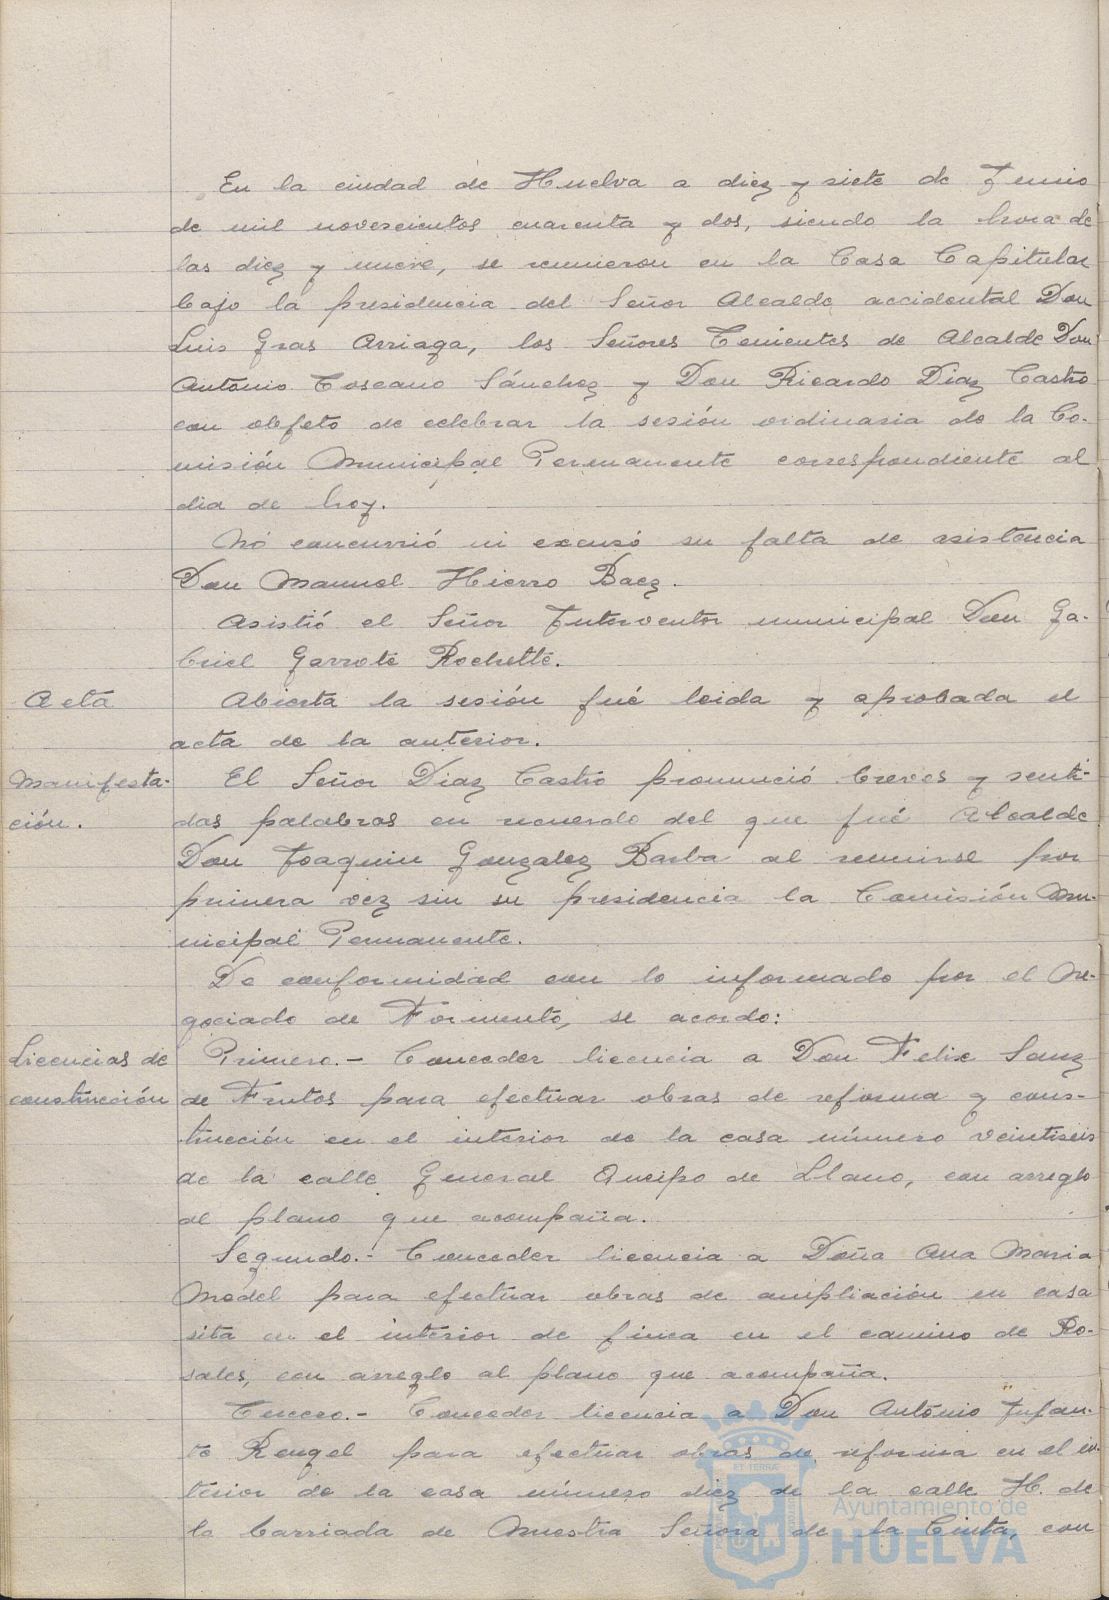 En la ciudad de Huelva a diez y siete de Junio
de mil novecientos cuarenta y dos, siendo la hora de
las diez y nueve, se reunieron en la Casa Capitular
bajo la presidencia del Señor Alcalde accidental Don
Luis Gras Arriaga, los Señores Tenientes de Alcalde Don
Antonio Toscano Sánchez y Don Ricardo Diaz Castro
con objeto de celebrar la sesión ordinaria de la Co-
misión Municipal Permanente correspondiente al
dia de hoy.
No concurrió ni excusó su falta de asistencia
Don Manuel Hierro Baez.
Asistió el Señor Interventor municipal Don Ga-
briel Garrote Rochette.
Acta
Abierta la sesión fué leida y aprobada el
acta de la anterior.
Manifesta-
ción.
El Señor Diaz Castro pronunció breves y senti-
das palabras en recuerdo del que fué Alcalde
Don Joaquin Gonzalez Barba al reunirse por
primera vez sin su presidencia la Comisión Mu-
nicipal Permanente.
De conformidad con lo informado por el Ne-
gociado de Fomento, se acordo:
Licencias de
construcción
Primero.- Conceder licencia a Don Felix Sanz
de Frutos para efectuar obras de reforma y cons-
trucción en el interior de la casa número veintiseis
de la calle General Queipo de Llano, con arreglo
al plano que acompaña.
Segundo.- Conceder licencia a Doña Ana Maria
Model para efectuar obras de ampliación en casa
sita en el interior de finca en el camino de Ro-
sales, con arreglo al plano que acompaña.
Tercero.- Conceder licencia a Don Antonio Infan-
te Rengel para efectuar obras de reforma en el in-
terior de la casa número diez de la calle H. de
la barriada de Nuestra Señora de la Cinta, con
Ayuntamiento de
HUELVA